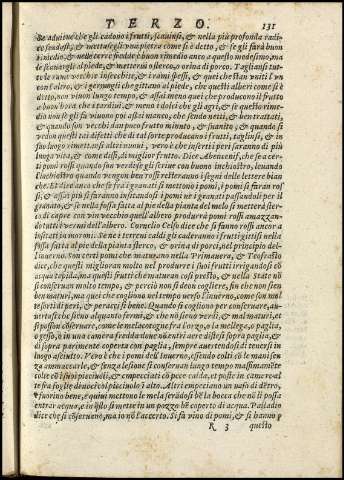 TERZO. 131
Se aduiene che gli cadono i frutti, scauinsi, & nella piu profonda radi-
ce fendasi, & mettasegli vna pietra come si è detto, & se gli farà buon
rimedio, & nelle cerese sarà buon rimedio anco questo medesimo, ma
te, & metterui sterco, o orina di porco. Taglinsi tut-
te le rame vecchie insecchite, & i rami spessi, & quei che stan vniti l'vn
con l'altro, & i germogli che gittano al piede, che questi alberi come si è
detto, non viuon lungo tempo, & assai meno quei che producono il frutto
a buon hora che i tardiui, & meno i dolci che gli agri, & se questo rime-
dio non se gli fa viuono poi assai manco, che sendo netti, & ben trattati,
& quando son vecchi dan poco frutto minuto, & & quando si
vedon tai difetti che di tal sorte producano i frutti, taglinsi, & in
suo luogo rimettansi altri nuoui, vero è che inseriti poi saranno di piu
lunga vita, & come dissi, di miglior frutto. Dice Abencenif, che se a cer-
ti pomi rossi quando son verdi se gli scriue con buono inchiostro, leuando
l'inchiostro quando vengon ben rossi resteranno i segni delle lettere bian
che. Et dice anco che se fra i granati si mettono i pomi, i pomi si faran ros
si, & assai piu si faranno inistando i pomi ne i granati passandoli per il
granato, & se nella fossa fatta al pie della pianta del melo si metterà ster-
co di capre con vin vecchio quell'albero produrrà pomi rossi amazzan-
do tutti i vermi dell'albero. Cornelio Celso dice che si fanno rossi ancor a
inistarli in moroni. Se ne i terreni caldi gli caderanno i frutti gittisi nella
fossa fatta al pie della pianta sterco, & orina di porci, nel principio del-
l'inuerno. Son certi pomi che maturano nella Primauera, & Teofrasto
dice, che questi miglioran molto nel produrre i suoi frutti irrigandosi cō
acqua tepida, ma questi frutti che maturan cosi presto, & nella State nō
si conseruan molto tempo, & perciò non si deon cogliere, fin che non sien
ben maturi, ma quei che cogliono nel tempo verso l'inuerno, come son mol
te sorti di peri, & peragesi bene. Quando si cogliono per conseruare, au-
tiscasi che sieno alquanto fermi, & che nō sieno verdi, & mal maturi, et
si posson cōseruare, come le melacotogne fra l'orgo, o la mellega, o paglia,
o gesso, o in vna camera fredda doue nō sia aere distesi sopra paglia, &
di sopra parimente coperta con paglia, sempre auuertendosi di tenersi in
luogo asciutto. Vero è che i pomi dell'Inuerno, essendo colti cō le mani sen
za ammaccarle, & senza lesione si conseruan lungo tempo massimamēte
colte cō i suoi piccinoli, & empeciati cō pece calda, et poste in camere al
te fra foglie di noce col picciuolo in alto. Altri empeciano un vaso di dētro,
& fuorino bene, & quiui mettono le mela serādosi bē la bocca che nō li possa
entrar acqua, e in q̃sto si mette in un pozzo bē coperto di acqua. Palladio
dice che si cōseruono, ma io nō l'accerto. Si fà vino di pomi, & si hanno p
R 3 questo